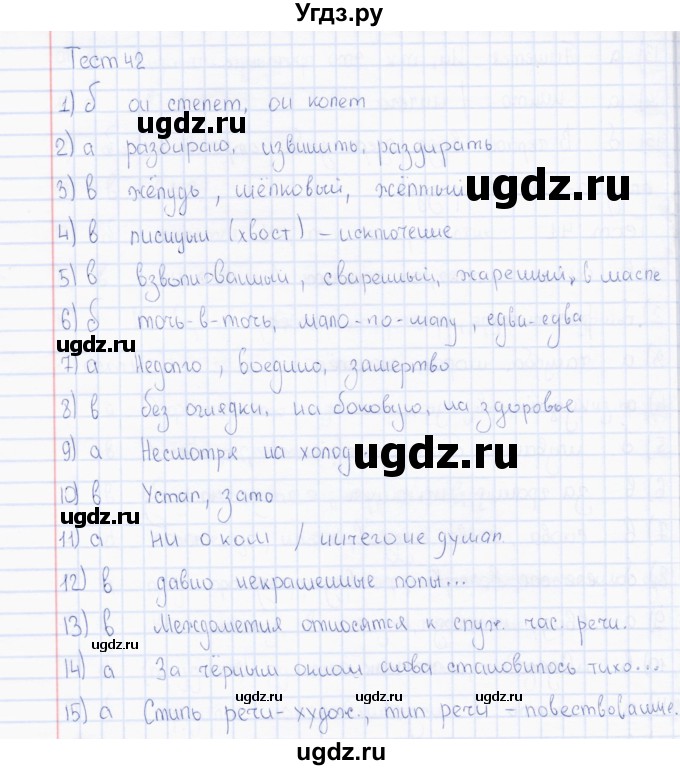 Угдз.ру
Тест 42
1) б он стелет, он колет
ugdz.ru
2) а разбираю, извинить, раздирать
3) в жёлудь, шёлковый, жёлтый ugdz.ru
4) в лисицын (хвост) - исключение
5) в взволнованный, сваренный, жаренный, в масле
6) б точь-в-точь, мало-по-малу, едва-едва
ugdz.ru
7) а Недолго, воедино, замертво
8) в без оглядки, на боковую, на здоровье
9) а Несмотря на холод ugdz.ru
10) в Устал, зато
ugdz.ru
11) а ни о ком / ничего не думал
12) в давно некрашенные полы...
13) в Междометия относятся к служ. час. речи.
ugdz.ru
14) а За чёрным окном снова становилось тихо...
ugdz.ru ugdz.ru ugdz.ru
15) а Стиль речи - худож., тип речи - повествование.
ugdz.ru